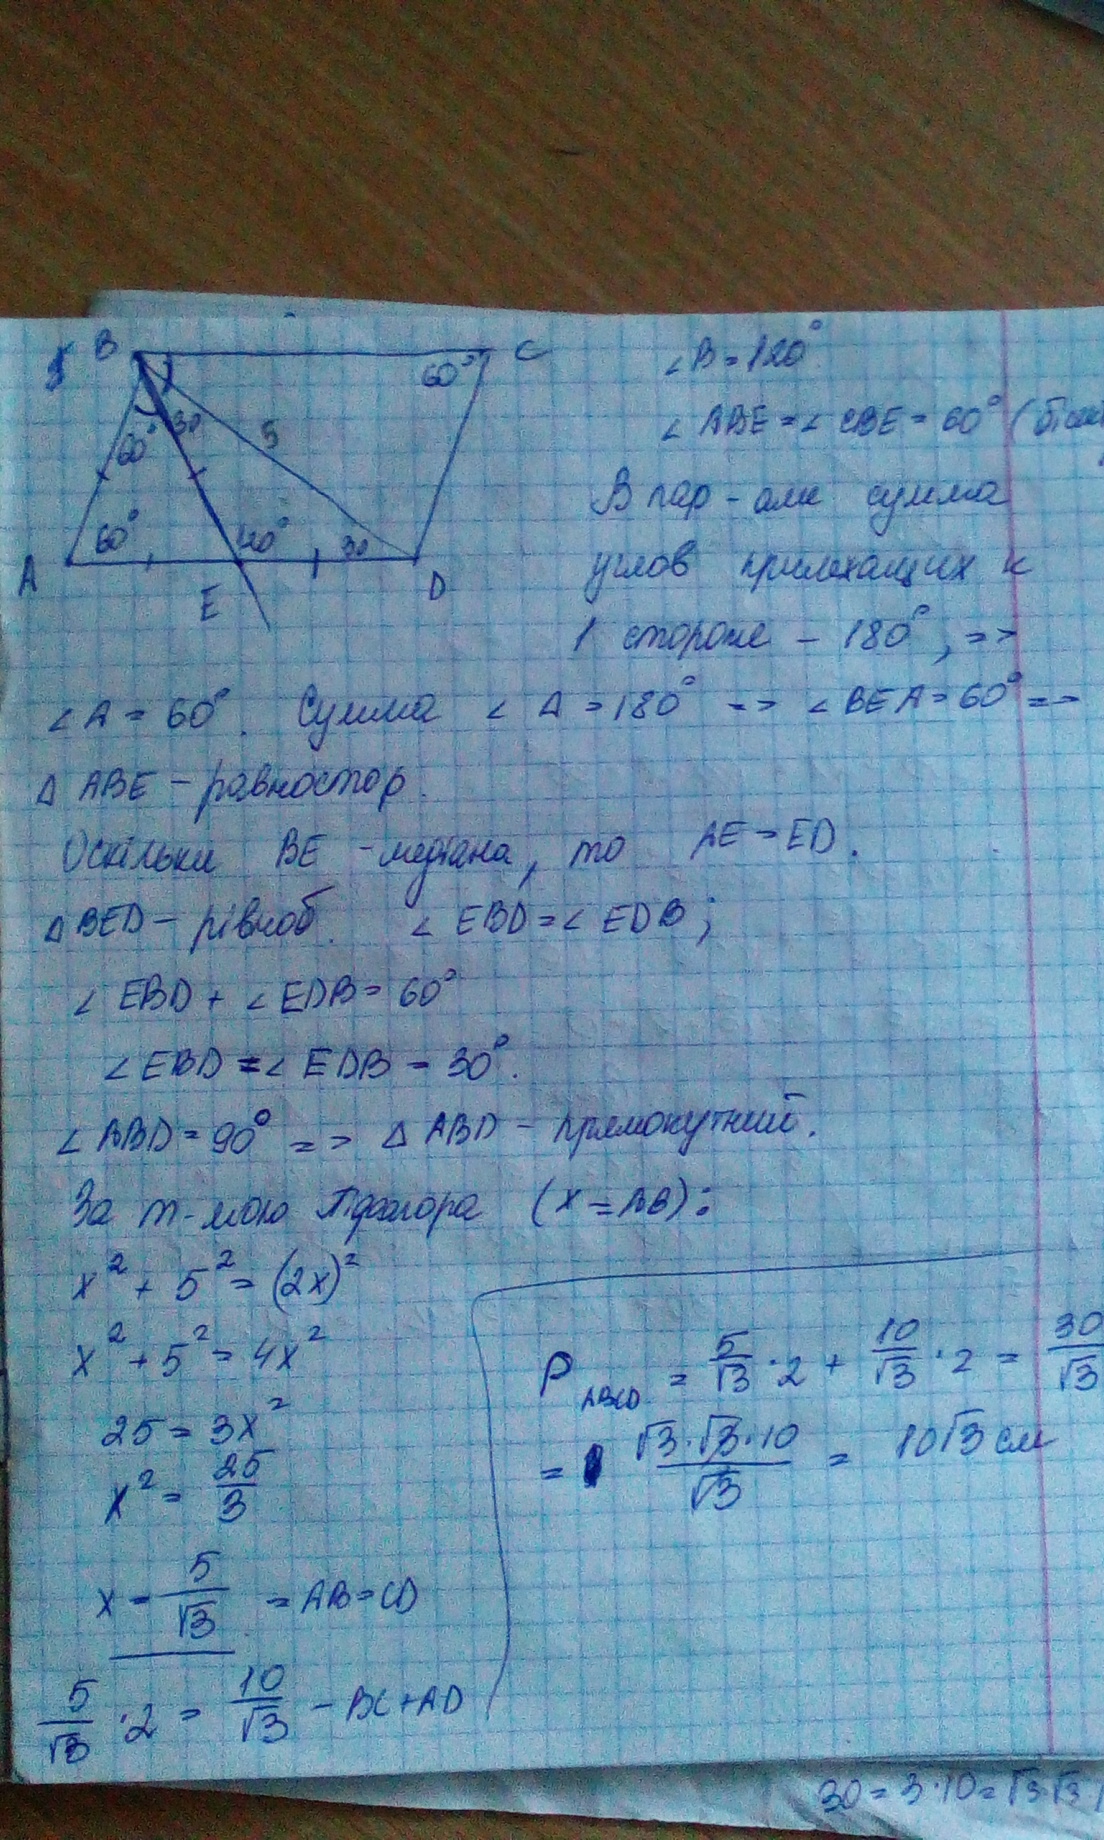 B C
60° 30 5 60°
60° 120° 30
A E D
∠B = 120°
∠ABE = ∠CBE = 60° (
В пар-аме сумма
углов прилежащих к
1 стороне - 180°, =>
∠A = 60°. Сумма ∠ Δ = 180° => ∠BEA = 60° =>
Δ ABE - равностор.
Оскільки BE - медіана, то AE = ED.
Δ BED - рівноб. ∠EBD = ∠EDB;
∠EBD + ∠EDB = 60°
∠EBD = ∠EDB = 30°.
∠ABD = 90° => Δ ABD - прямокутний.
За т-мою Піфагора (x = AB):
x² + 5² = (2x)²
x² + 5² = 4x²
25 = 3x²
x² = 25/3
x = 5/√3 = AB = CD
5/√3 · 2 = 10/√3 - BC + AD
P ABCD = 5/√3 · 2 + 10/√3 · 2 = 30/√3
= √3·√3·10/√3 = 10√3 см
30 = 3·10 = √3·√3·